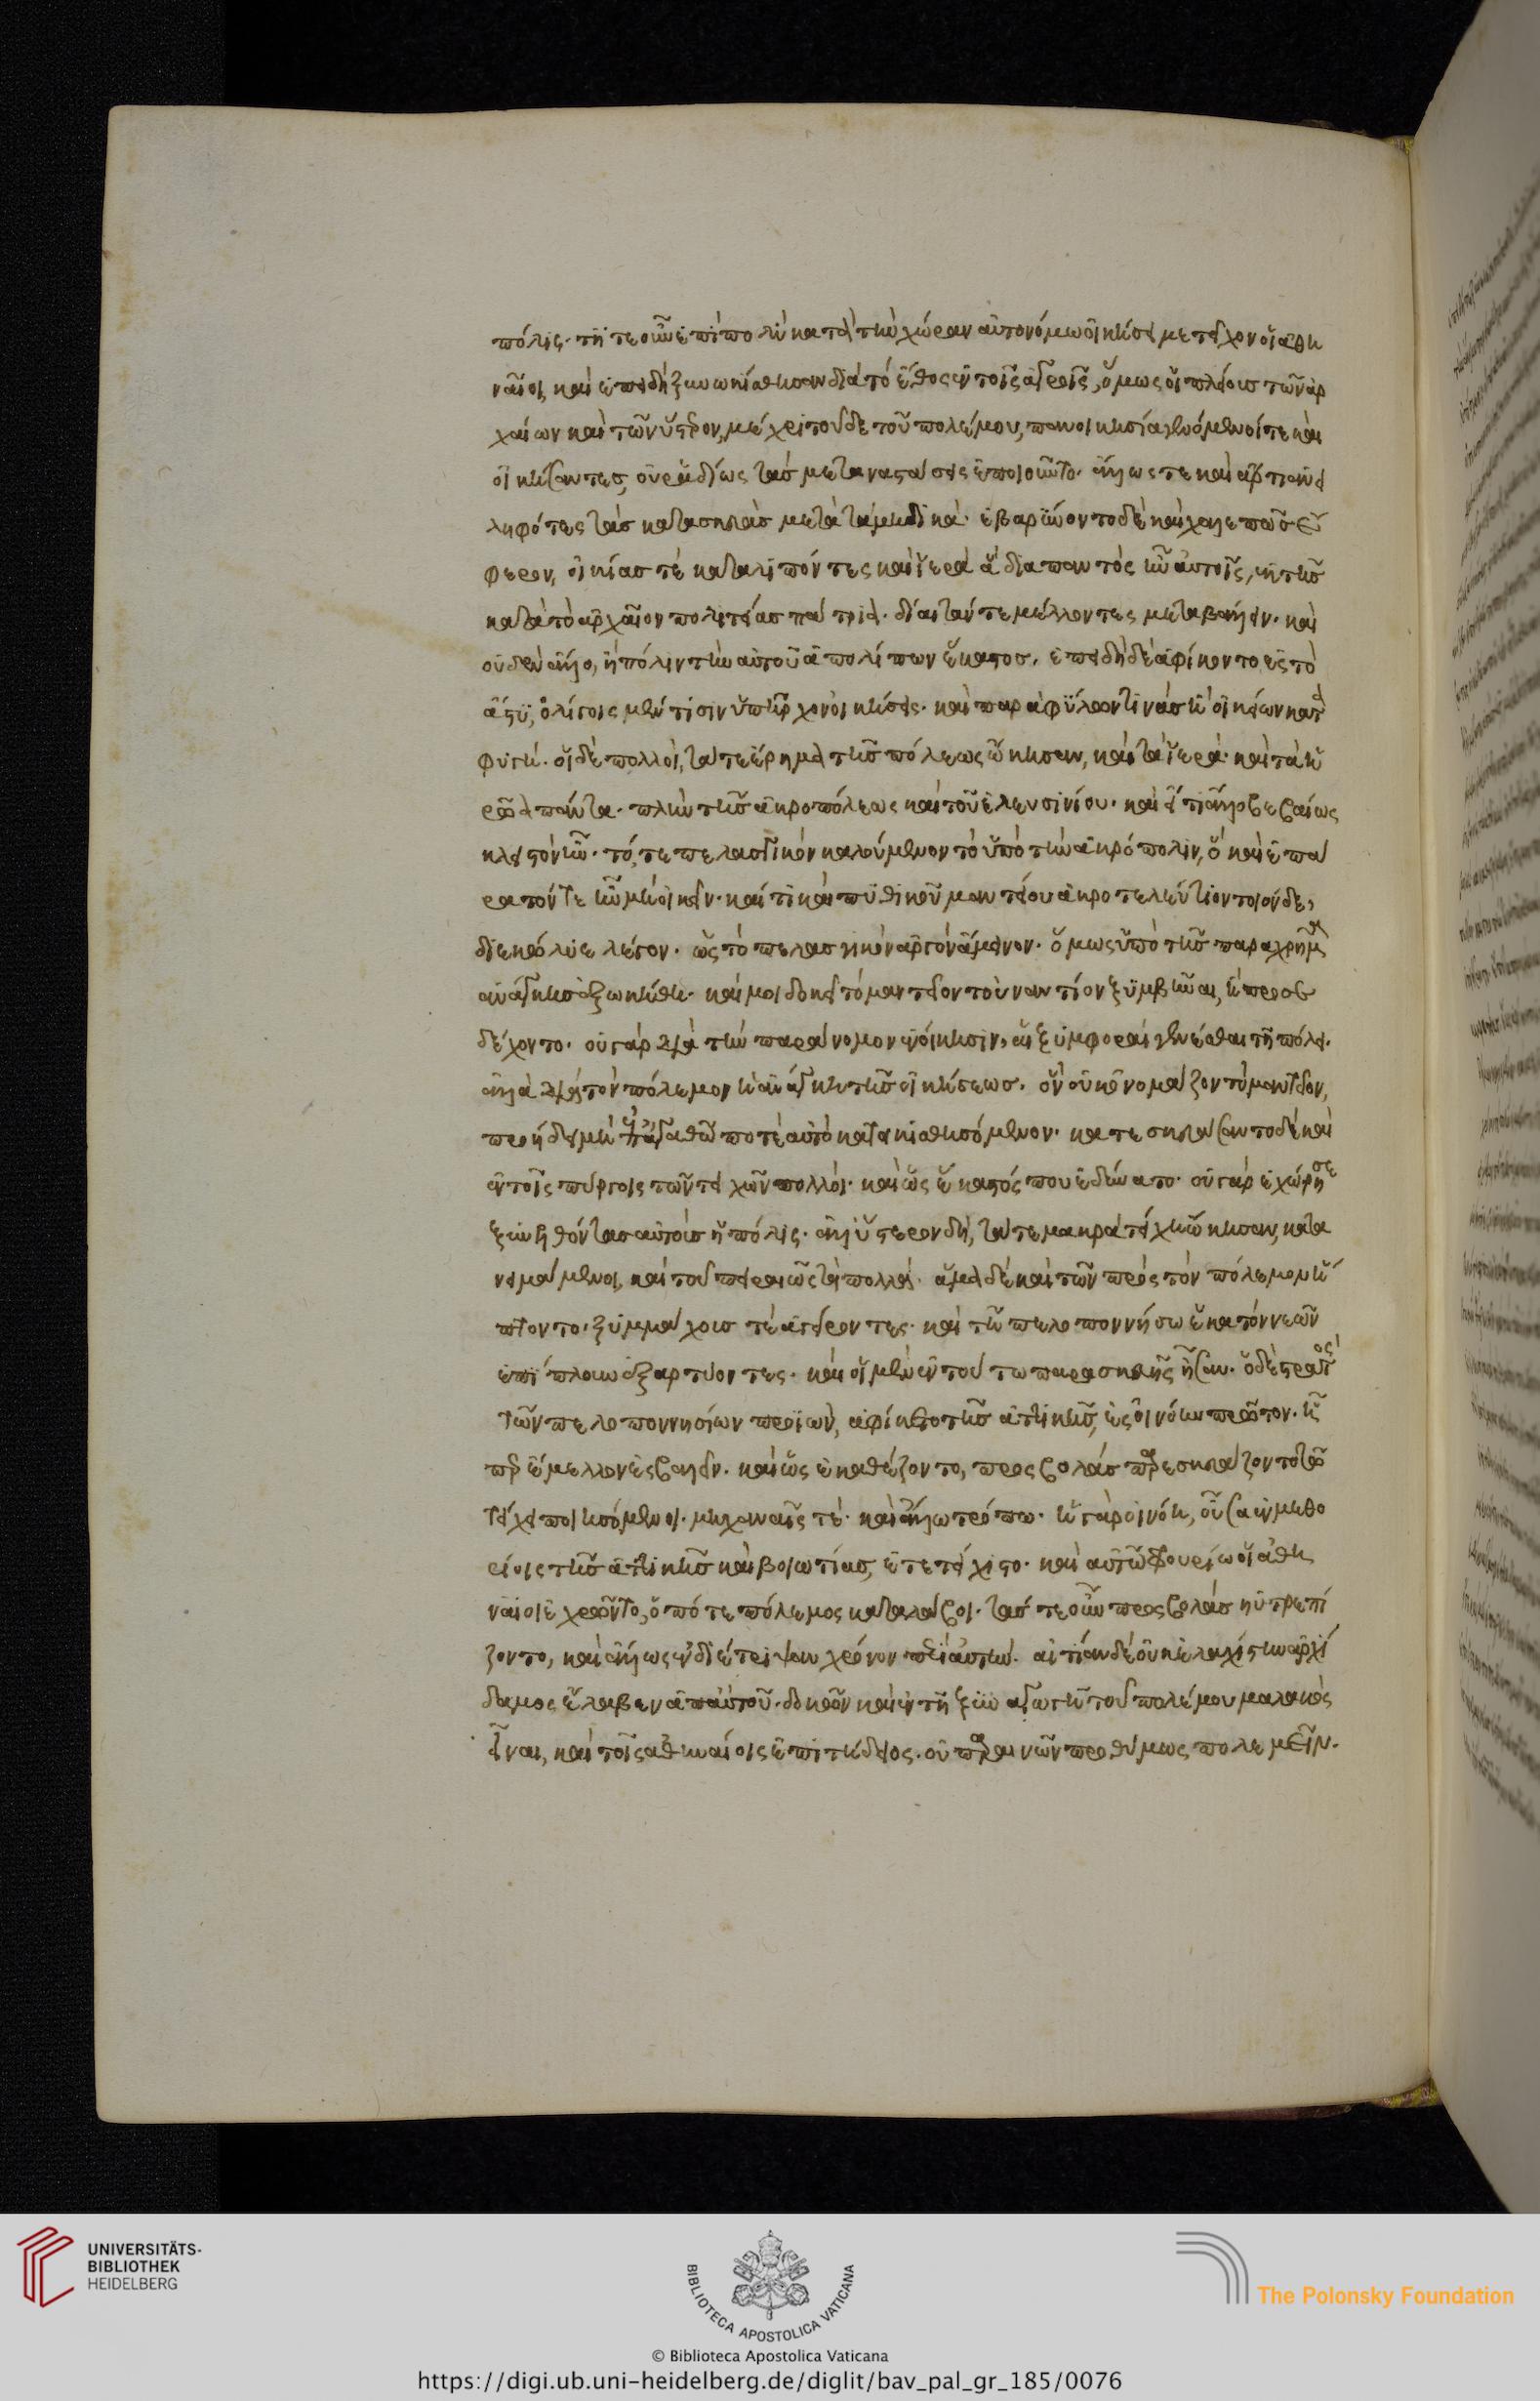 πόλις. τῆ τε οὖν ἐπὶ πολὺ κατὰ τὴν χώραν αὐτονόμω οἰκήσει μετεῖχον οἱ ἀθη
ναῖοι, καὶ ἐπειδὴ ξυνωκίσθησαν διὰ τὸ ἔθος ἐν τοῖς ἀγροῖς, ὅμως οἱ πλείους τῶν ἀρ
χαίων καὶ τῶν ὕστερον, μέχρι τοῦδε τοῦ πολέμου, πανοικησίᾳ γενόμενοί τε καὶ
οἰκήσαντες, οὐ ῥαδίως τὰς μεταναστάσεις ἐποιοῦντο. ἄλλως τε καὶ ἄρτι ἀνει
ληφότες τὰς κατασκευὰς μετὰ τὰ μηδικά. ἐβαρύνοντο δὲ καὶ χαλεπῶς ἔ
φερον, οἰκίας τὲ καταλιπόντες καὶ ἱερὰ ἃ διαπαντὸς ἦν αὐτοῖς, ἐκ τῆς
κατὰ τὸ ἀρχαῖον πολιτείας πάτρια. δίαιτάν τε μέλλοντες μεταβάλλειν. καὶ
οὐδὲν ἄλλο, ἢ πόλιν τὴν αὑτοῦ ἀπολίπων ἕκαστος. ἐπειδὴ δὲ ἀφίκοντο ἐς τὸ
ἄστυ, ὀλίγοις μέν τισιν ὑπῆρχον οἰκήσεις. καὶ παρὰ φίλων τινὰς ἢ οἰκείων κατα
φυγή. οἱ δὲ πολλοὶ, τά τε ἔρημα τῆς πόλεως ὤκησαν, καὶ τὰ ἱερὰ καὶ τὰ ἡ
ρῶα πάντα. πλὴν τῆς ἀκροπόλεως καὶ τοῦ ἐλευσινίου. καὶ εἴ τι ἄλλο βεβαίως
κλειστὸν ἦν. τό, τε πελασγικὸν καλούμενον τὸ ὑπὸ τὴν ἀκρόπολιν, ὃ καὶ ἐπά
ρατόν τε ἦν μὴ οἰκεῖν. καί τι καὶ πυθικοῦ μαντείου ἀκροτελεύτιον τοιόνδε,
διεκώλυε λέγον. ὡς τὸ πελασγικὸν ἀργὸν ἄμεινον. ὅμως ὑπὸ τῆς παραχρῆμα
ἀνάγκης ἐξωκήθη. καί μοι δοκεῖ τὸ μαντεῖον τοὐναντίον ξυμβῆναι, ἢ προσε
δέχοντο. οὐ γὰρ διὰ τὴν παράνομον ἐνοίκησιν, αἱ ξυμφοραὶ γενέσθαι τῆ πόλει.
ἀλλὰ διὰ τὸν πόλεμον ἡ ἀνάγκη τῆς οἰκήσεως. ὃν οὐκ ὀνομάζον τὸ μαντεῖον,
προήδει μὴ ἐπ' ἀγαθῶ ποτὲ αὐτὸ κατοικισθησόμενον. κατεσκευάσαντο δὲ καὶ
ἐν τοῖς πύργοις τῶν τειχῶν πολλοὶ. καὶ ὡς ἕκαστός που ἐδύνατο. οὐ γὰρ ἐχώρησε
ξυνελθόντας αὐτοὺς ἡ πόλις. ἀλλ' ὕστερον δὴ, τά τε μακρὰ τείχη ὤκησαν, κατα
νειμάμενοι, καὶ τοῦ πειραιῶς τὰ πολλά. ἅμα δὲ καὶ τῶν πρὸς τὸν πόλεμον ἥ
πτοντο. ξυμμάχους τὲ ἀγείροντες. καὶ τῆ πελοποννήσω ἑκατὸν νεῶν
ἐπίπλουν ἐξαρτύοντες. καὶ οἱ μὲν ἐν τούτω παρασκευῆς ἦσαν. ὁ δὲ στρατὸς
τῶν πελοποννησίων προϊὼν, ἀφίκετο τῆς ἀττικῆς, ἐς οἰνόην πρῶτον. ᾗ
περ ἔμελλον ἐσβαλεῖν. καὶ ὡς ἐκαθέζοντο, προσβολὰς παρεσκευάζοντο τῶ
τείχει ποιησόμενοι. μηχαναῖς τὲ. καὶ ἄλλω τρόπω. ἡ γὰρ οἰνόη, οὖσα ἐν μεθο
ρίοις τῆς ἀττικῆς καὶ βοιωτίας, ἐτετείχιστο. καὶ αὐτῶ φρουρίω οἱ ἀθη
ναῖοι ἐχρῶντο, ὁπότε πόλεμος καταλάβοι. τάς τε οὖν προσβολὰς ηὐτρεπί
ζοντο, καὶ ἄλλως ἐνδιέτριψαν χρόνον περὶ αὐτήν. αἰτίαν δὲ οὐκ ἐλαχίστην ἀρχί
δαμος ἔλαβεν ἀπ' αὐτοῦ. δοκῶν καὶ ἐν τῆ ξυναγωγῆ τοῦ πολέμου μαλακὸς
εἶναι, καὶ τοῖς ἀθηναίοις ἐπιτήδειος. οὐ παραινῶν προθύμως πολεμεῖν.
UNIVERSITÄTS-
BIBLIOTHEK
HEIDELBERG
BIBLIOTECA APOSTOLICA VATICANA
The Polonsky Foundation
© Biblioteca Apostolica Vaticana
https://digi.ub.uni-heidelberg.de/diglit/bav_pal_gr_185/0076